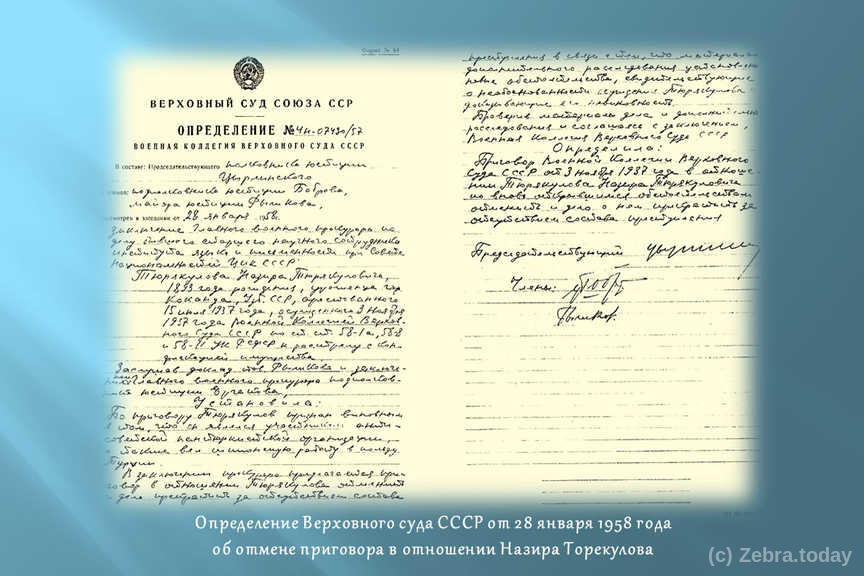 Форма № 84
ВЕРХОВНЫЙ СУД СОЮЗА ССР
ОПРЕДЕЛЕНИЕ №4н-07430/57
ВОЕННАЯ КОЛЛЕГИЯ ВЕРХОВНОГО СУДА СССР
В составе: Председательствующего полковника юстиции
Цырлинского
подполковника юстиции Боброва,
майора юстиции Фыликова,
в заседании от 28 января 1958 г.
заключение Главного военного прокурора по
делу бывшего старшего научного сотрудника
института языка и письменности при Совете
Национальностей ЦИК СССР
Тюрякулова Назира Тюрякуловича,
1893 года рождения, уроженца гор.
Коканда, Уз. ССР, арестованного
15 июля 1937 года, осужденного 3 ноября
1937 года Военной Коллегией Верхов-
ного Суда СССР по ст. ст. 58-1а, 58-8
и 58-11 УК РСФСР к расстрелу с кон-
фискацией имущества
Заслушав доклад тов Фыликова и заключе-
Главного военного прокурора подполков-
юстиции
Установила:
По приговору Тюрякулов признан виновным
в том, что он являлся участником анти-
советской пантюркистской организации,
а также вел шпионскую работу в пользу
Турции
В заключении прокурора предлагается при-
говор в отношении Тюрякулова отменить
и дело прекратить за отсутствием состава
преступления в связи с тем, что материалами
дополнительного расследования установлены
новые обстоятельства, свидетельствующие
о необоснованности осуждения Тюрякулова и
его невиновность.
Проверив материалы дела и дополнительного
расследования и соглашаясь с заключением,
Военная Коллегия Верховного Суда СССР
Определила:
Приговор Военной Коллегии Верховного
Суда СССР от 3 ноября 1937 года в отноше-
нии Тюрякулова Назира Тюрякуловича
по вновь открывшимся обстоятельствам
отменить и дело о нем прекратить за
отсутствием состава преступления
Председательствующий
Члены:
Определение Верховного суда СССР от 28 января 1958 года
об отмене приговора в отношении Назира Торекулова
(c) Zebra.today